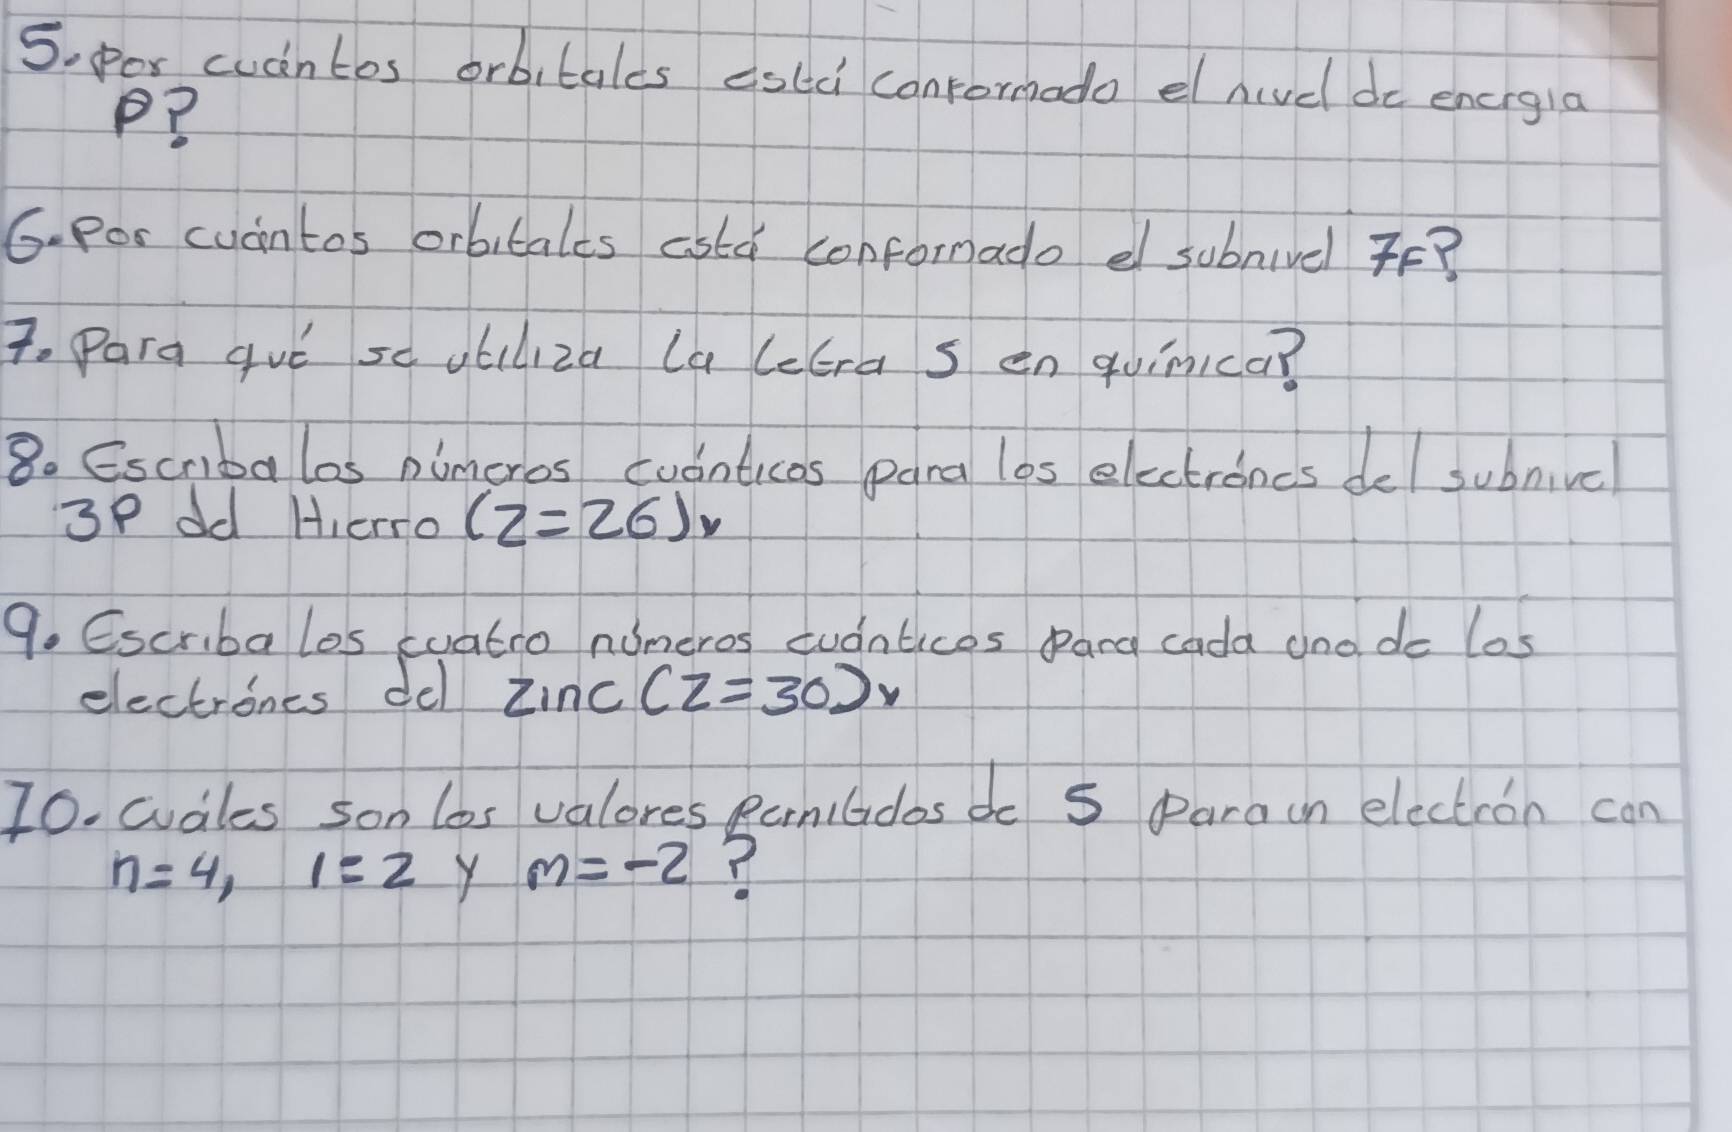 5. Por cuántos orbitales está conformado el nivel de energia
P?
6. Por cuántos orbitales está conformado el subnivel 7F?
7. Para qué se utiliza la letra S en química?
8. Escriba los números cuánticos para los electrónes del subnivel
3P del Hierro (Z=26)
9. Escriba los cuatro números cuánticos para cada una de los
electrónes del Zinc (Z=30)
10. Cuáles son los valores permitidos de S para un electrón con
n=4, l=2 y m=-2?